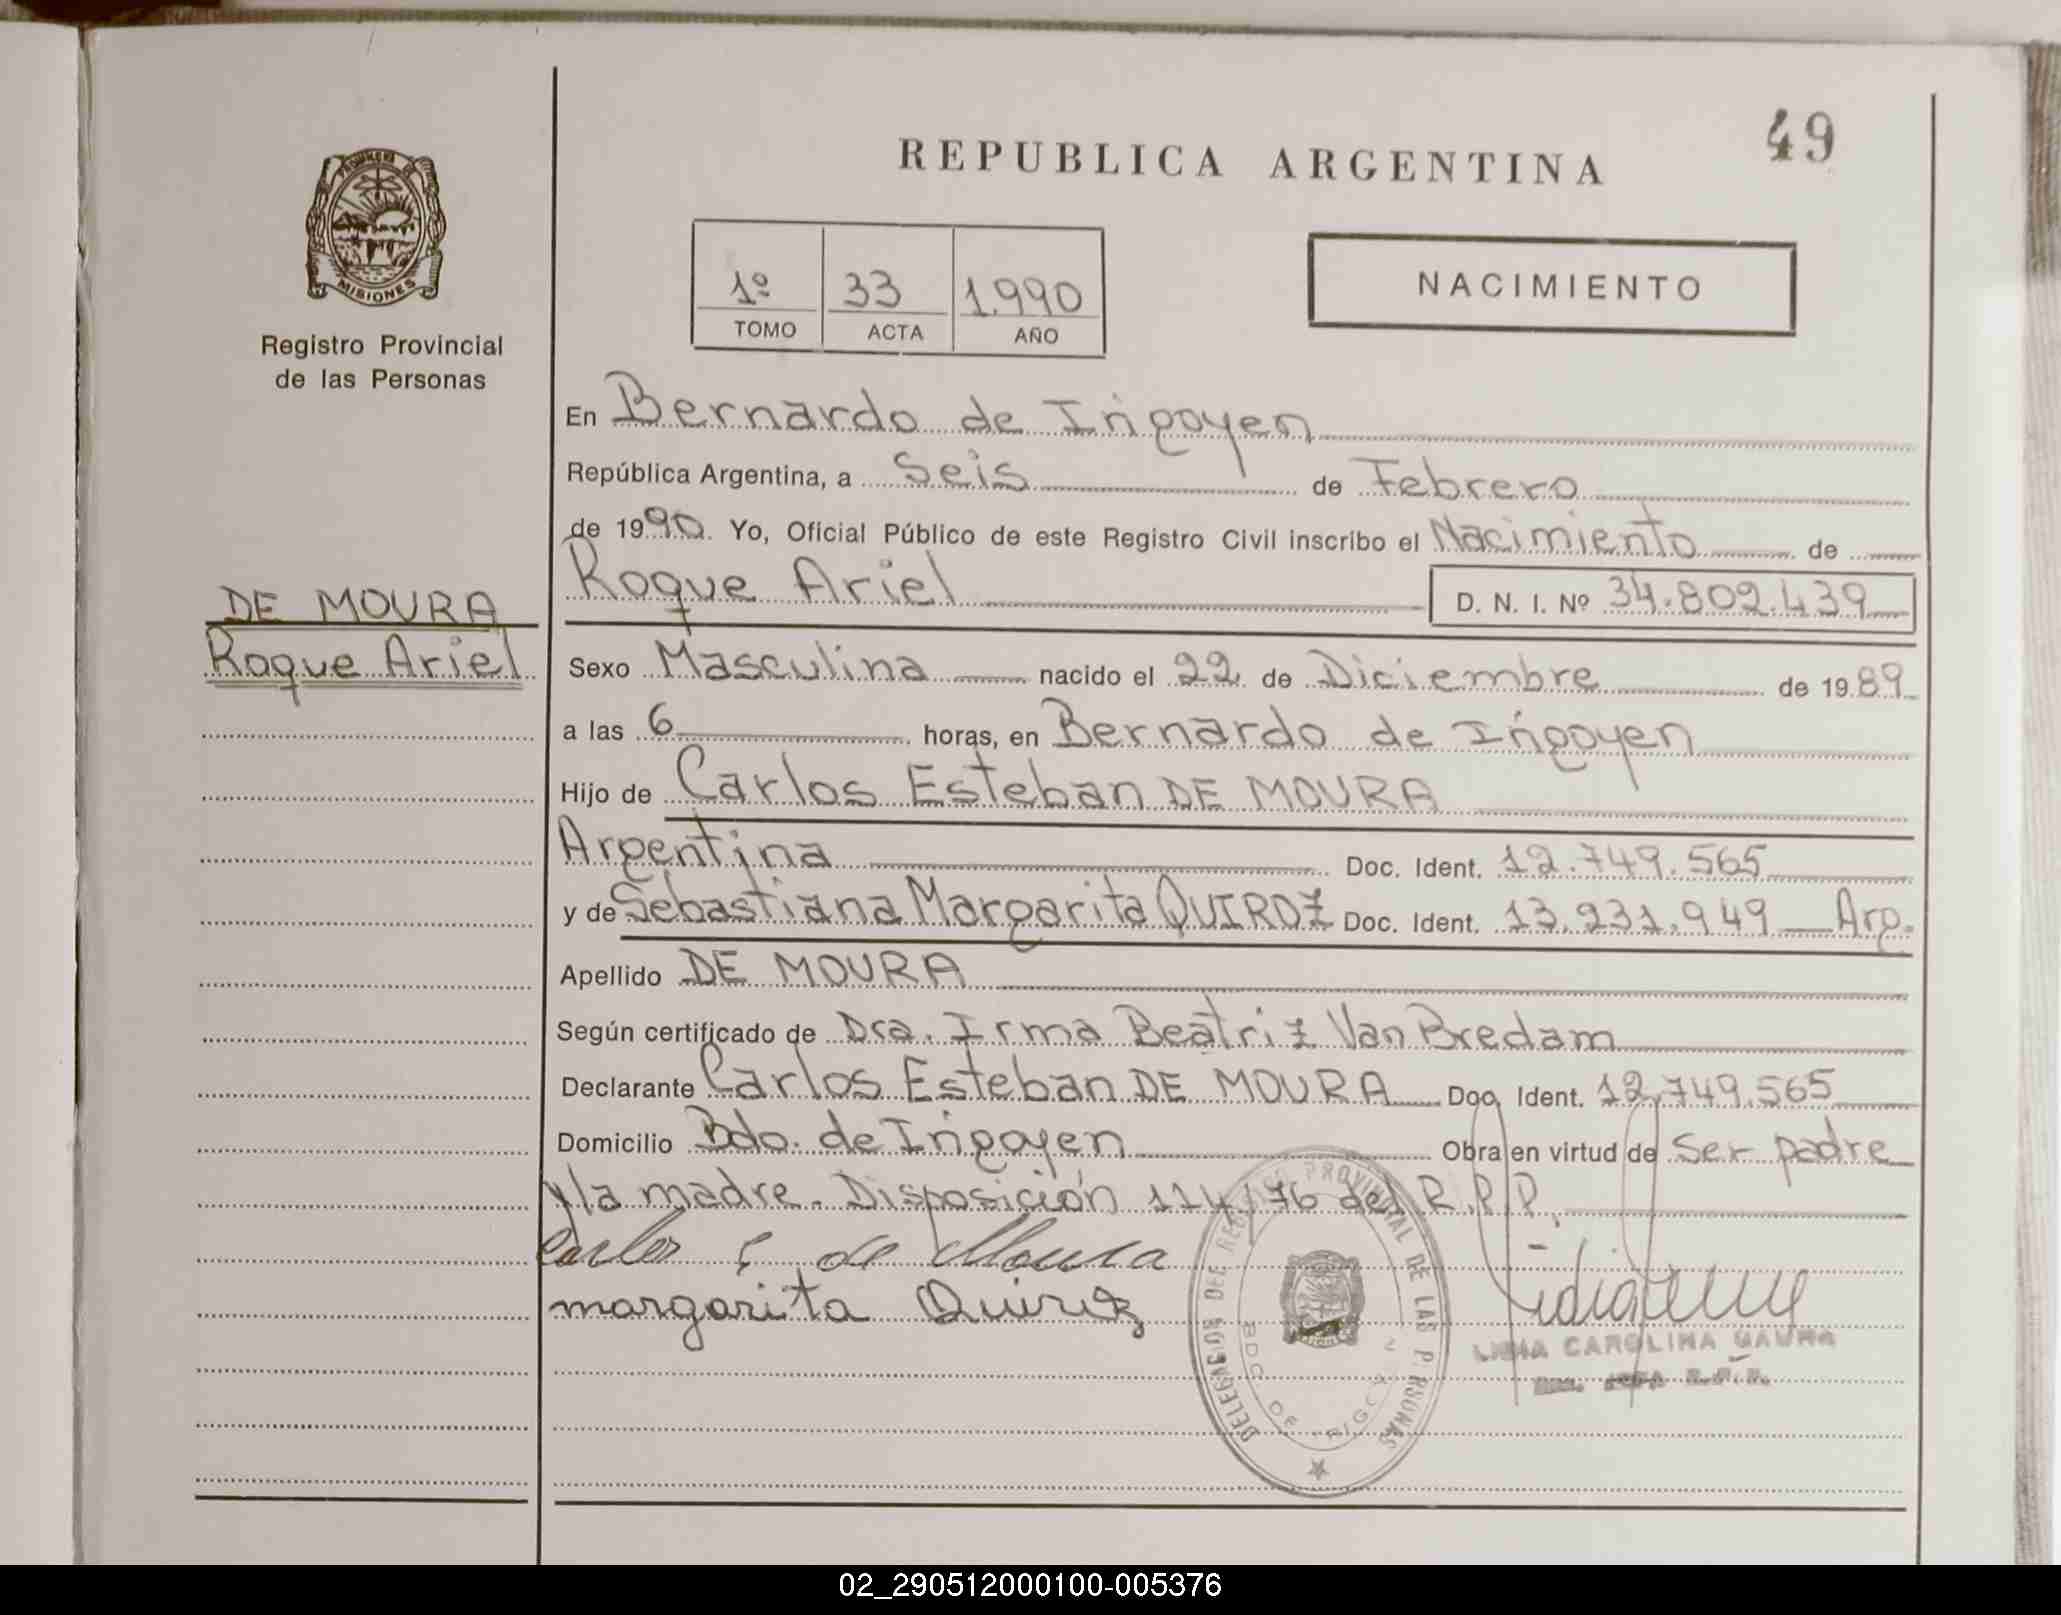 49
REPUBLICA ARGENTINA
MISIONES
Registro Provincial
de las Personas
1º 33 1.990
TOMO ACTA AÑO
NACIMIENTO
En Bernardo de Irigoyen
República Argentina, a Seis de Febrero
de 1990 Yo, Oficial Público de este Registro Civil inscribo el Nacimiento de
Roque Ariel D. N. I. Nº 34.802.439
DE MOURA
Roque Ariel
Sexo Masculina nacido el 22 de Diciembre de 1989
a las 6 horas, en Bernardo de Irigoyen
Hijo de Carlos Esteban DE MOURA
Argentina Doc. Ident. 12.749.565
y de Sebastiana Margarita QUIROZ Doc. Ident. 13.231.949 Arg.
Apellido DE MOURA
Según certificado de Dra. Irma Beatriz Van Bredam
Declarante Carlos Esteban DE MOURA Doc. Ident. 12.749.565
Domicilio Bdo. de Irigoyen Obra en virtud de ser padre
y la madre. Disposición 114/76 del R.P.P.
Carlos E de Moura
margarita Quiroz
DELEGACION DEL REGISTRO PROVINCIAL DE LAS PERSONAS
BDO DE IRIGOYEN
LIDIA CAROLINA
02_290512000100-005376